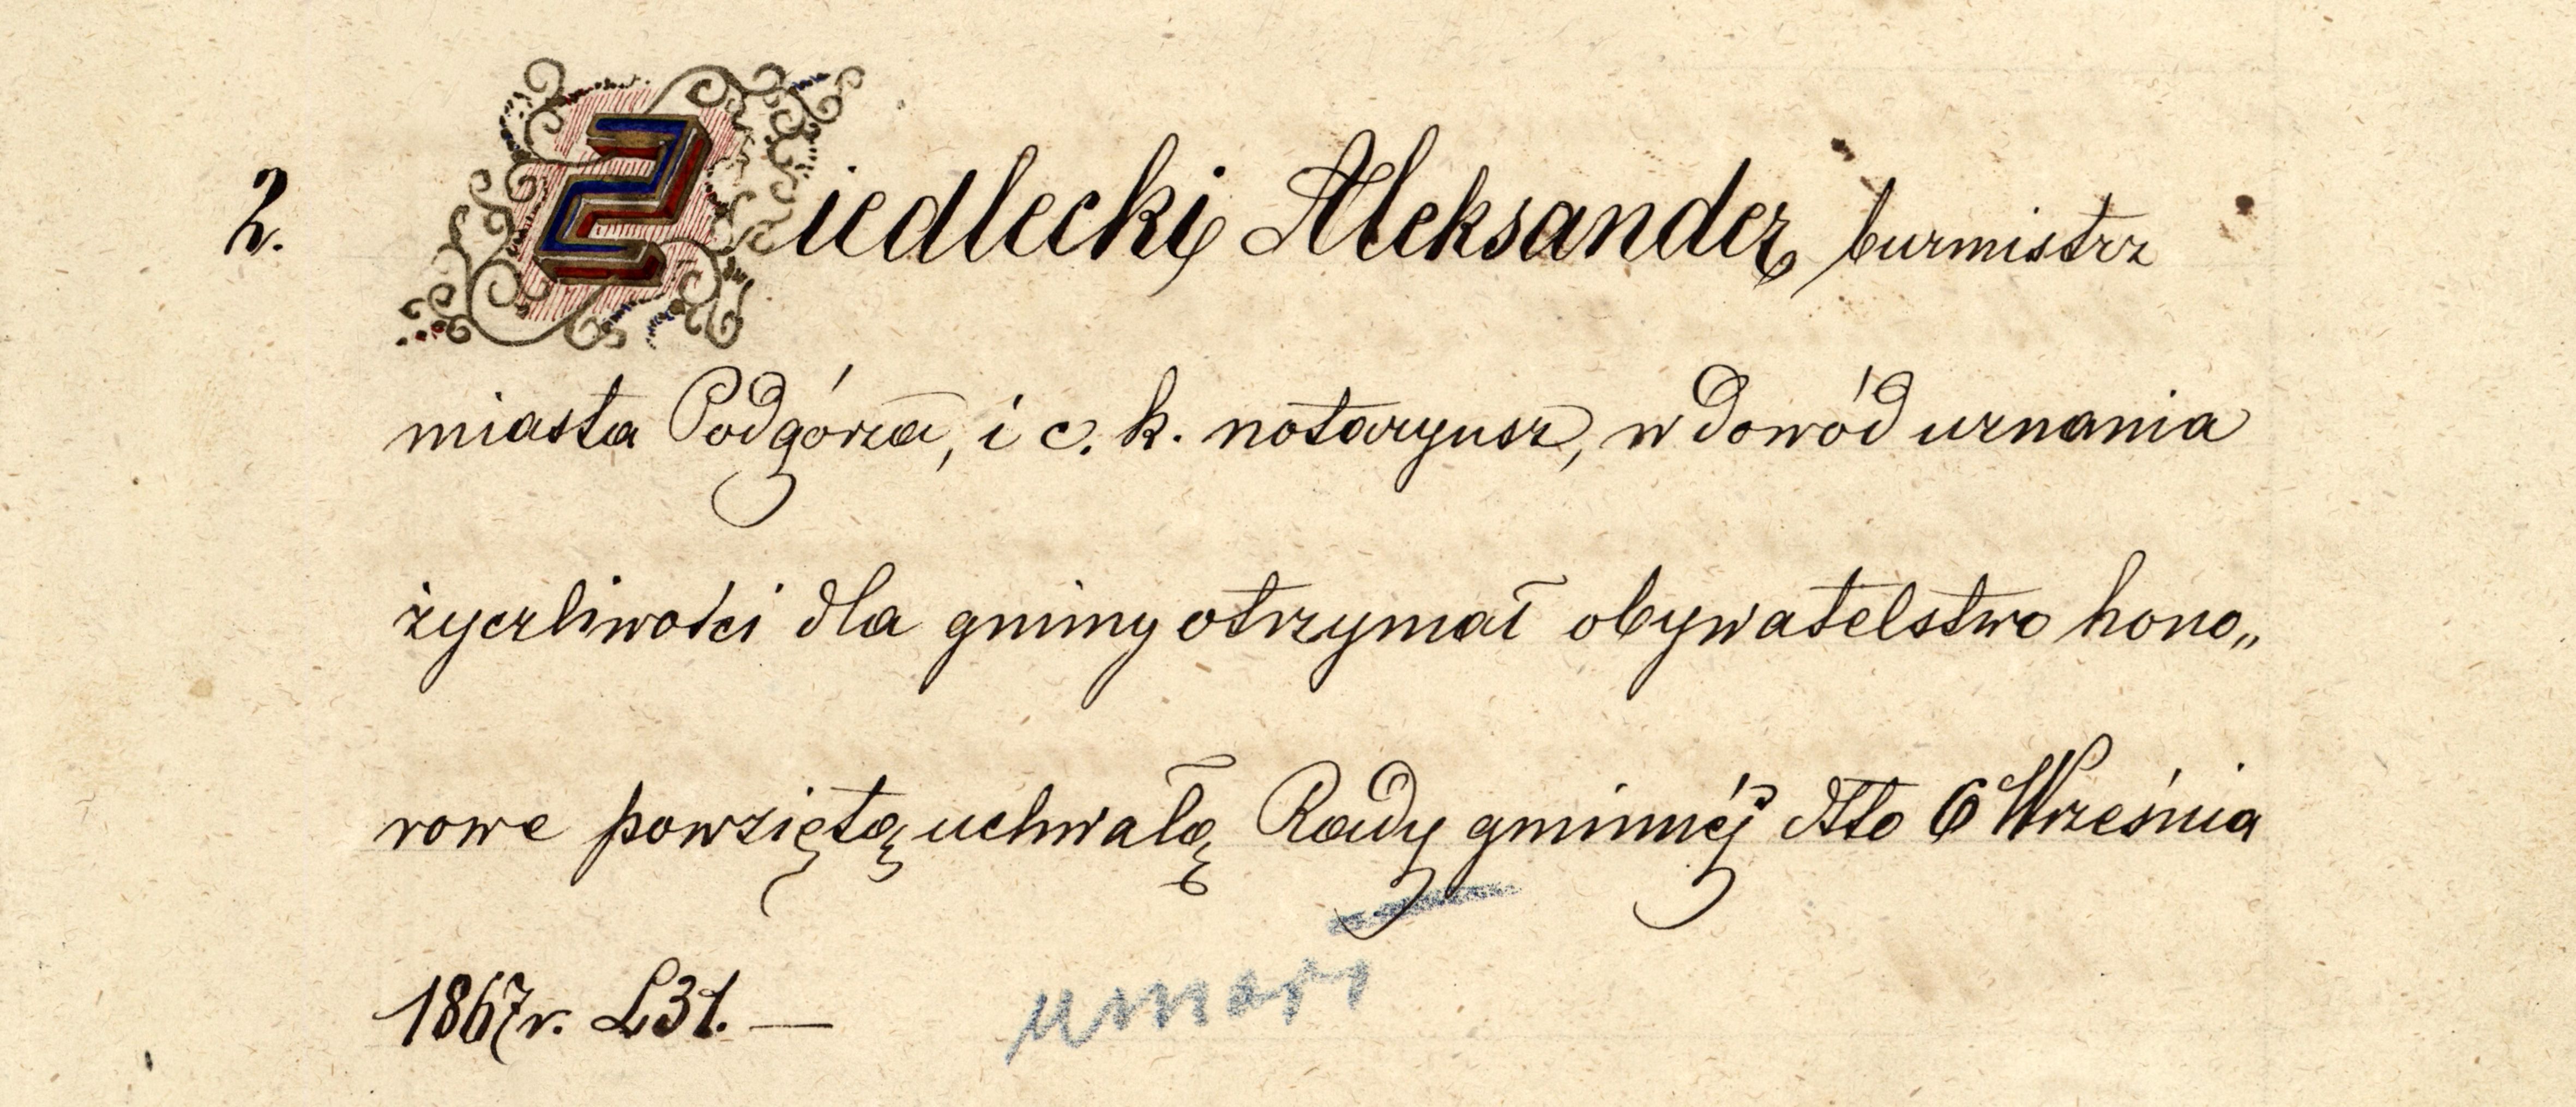 2. Ziedlecki Aleksander burmistrz
miasta Podgórza, i c. k. notaryusz, w dowód uznania
życzliwości dla gminy otrzymał obywatelstwo hono„
rowe powziętą uchwałą Rady gminnéj dtto 6 Września
1867 r. L31. —
umarł